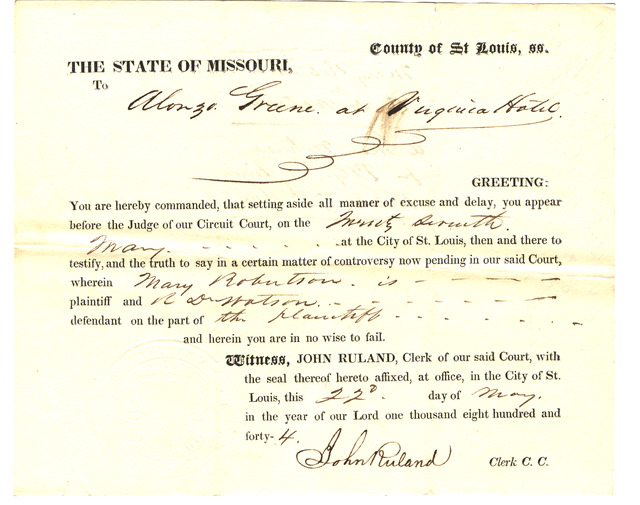 County of St Louis, ss.
THE STATE OF MISSOURI,
To
Alonzo Greene. at Virginia Hotel.
GREETING:
You are hereby commanded, that setting aside all manner of excuse and delay, you appear
before the Judge of our Circuit Court, on the Twenty Seventh.
May. - - - - - at the City of St. Louis, then and there to
testify, and the truth to say in a certain matter of controversy now pending in our said Court,
wherein Mary Robertson. is - - - -
plaintiff and R D Watson. - - - - - -
defendant on the part of the plaintiff - - - - - -
and herein you are in no wise to fail.
Witness, JOHN RULAND, Clerk of our said Court, with
the seal thereof hereto affixed, at office, in the City of St.
Louis, this 22d. day of May.
in the year of our Lord one thousand eight hundred and
forty-4.
John Ruland Clerk C. C.